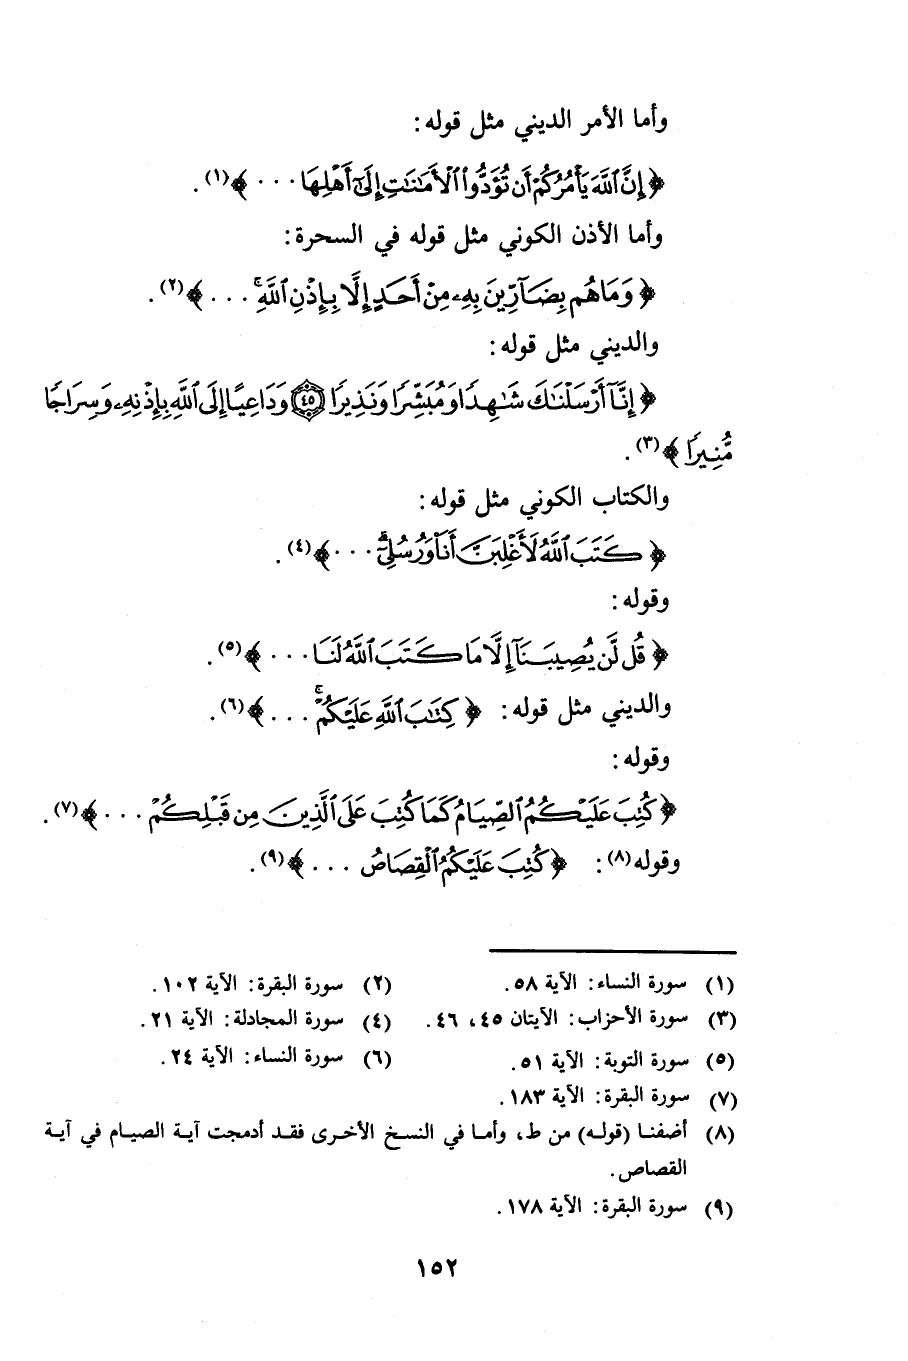 وأما الأمر الديني مثل قوله:
﴿ إِنَّ ٱللَّهَ يَأْمُرُكُمْ أَن تُؤَدُّوا۟ ٱلْأَمَٰنَٰتِ إِلَىٰٓ أَهْلِهَا . . . ﴾(١).
وأما الأذن الكوني مثل قوله في السحرة:
﴿ وَمَا هُم بِضَآرِّينَ بِهِۦ مِنْ أَحَدٍ إِلَّا بِإِذْنِ ٱللَّهِ ۚ . . . ﴾(٢).
والديني مثل قوله:
﴿ إِنَّآ أَرْسَلْنَٰكَ شَٰهِدًا وَمُبَشِّرًا وَنَذِيرًا ٤٥ وَدَاعِيًا إِلَى ٱللَّهِ بِإِذْنِهِۦ وَسِرَاجًا
مُّنِيرًا ﴾(٣).
والكتاب الكوني مثل قوله:
﴿ كَتَبَ ٱللَّهُ لَأَغْلِبَنَّ أَنَا۠ وَرُسُلِىٓ ۚ . . . ﴾(٤).
وقوله:
﴿ قُل لَّن يُصِيبَنَآ إِلَّا مَا كَتَبَ ٱللَّهُ لَنَا . . . ﴾(٥).
والديني مثل قوله: ﴿ كِتَٰبَ ٱللَّهِ عَلَيْكُمْ ۚ . . . ﴾(٦).
وقوله:
﴿ كُتِبَ عَلَيْكُمُ ٱلصِّيَامُ كَمَا كُتِبَ عَلَى ٱلَّذِينَ مِن قَبْلِكُمْ . . . ﴾(٧).
وقوله(٨): ﴿ كُتِبَ عَلَيْكُمُ ٱلْقِصَاصُ . . . ﴾(٩).
(١) سورة النساء: الآية ٥٨. (٢) سورة البقرة: الآية ١٠٢.
(٣) سورة الأحزاب: الآيتان ٤٥، ٤٦. (٤) سورة المجادلة: الآية ٢١.
(٥) سورة التوبة: الآية ٥١. (٦) سورة النساء: الآية ٢٤.
(٧) سورة البقرة: الآية ١٨٣.
(٨) أضفنا (قوله) من ط، وأما في النسخ الأخرى فقد أدمجت آية الصيام في آية
القصاص.
(٩) سورة البقرة: الآية ١٧٨.
١٥٢